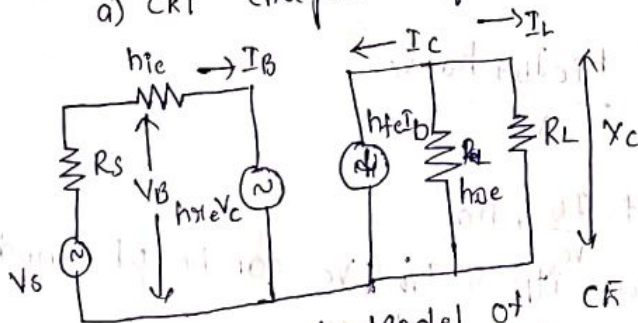 a) CKT
→ IL
hie → IB
← IC
RS
VB
hreVc
hfeIb
hoe
RL
Vs
Model of CE